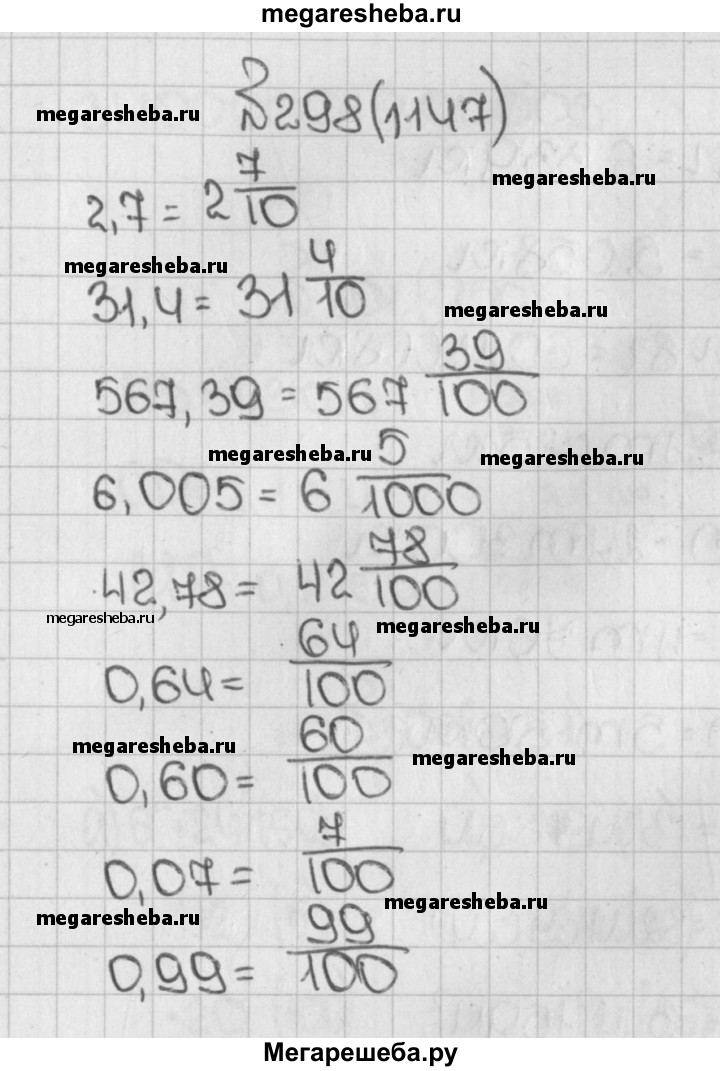 megaresheba.ru
№298(1147)
megaresheba.ru
megaresheba.ru
2,7 = 2 7/10
megaresheba.ru
31,4 = 31 4/10
megaresheba.ru
567,39 = 567 39/100
megaresheba.ru
megaresheba.ru
6,005 = 6 5/1000
42,78 = 42 78/100
megaresheba.ru
megaresheba.ru
0,64 = 64/100
megaresheba.ru
megaresheba.ru
0,60 = 60/100
0,07 = 7/100
megaresheba.ru
megaresheba.ru
0,99 = 99/100
Мегарешеба.ру